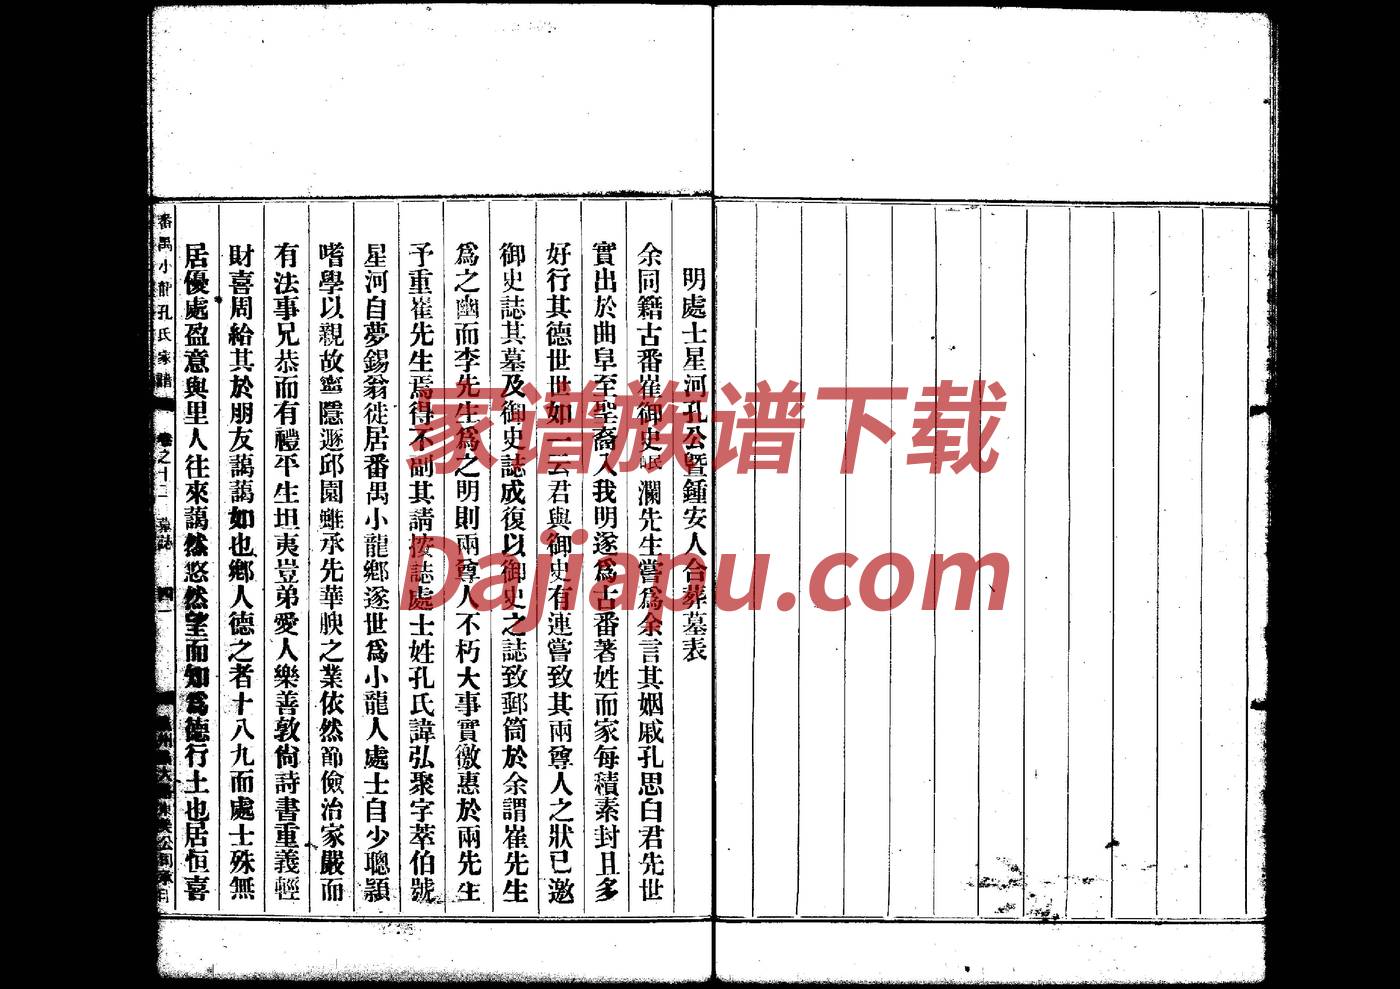 明處士星河孔公暨鍾安人合葬墓表
余同籍古番崔御史岷瀾先生嘗爲余言其姻戚孔思白君先世
實出於曲阜至聖裔入我明遂爲古番著姓而家每積素封且多
好行其德世世如一云君與御史有連嘗致其兩尊人之狀已邀
御史誌其墓及御史誌成復以御史之誌致郵筒於余謂崔先生
爲之幽而李先生爲之明則兩尊人不朽大事實徼惠於兩先生
予重崔先生焉得不副其請按誌處士姓孔氏諱弘聚字萃伯號
星河自夢錫翁徙居番禺小龍鄉遂世爲小龍人處士自少聰穎
嗜學以親故寧隱遯邱園雖承先華腴之業依然節儉治家嚴而
有法事兄恭而有禮平生坦夷豈弟愛人樂善敦尙詩書重義輕
財喜周給其於朋友藹藹如也鄉人德之者十八九而處士殊無
居優處盈意與里人往來藹然悠然望而知爲德行士也居恒喜
番禺小龍孔氏家譜 卷之十二 墓誌
家谱族谱下载
Dajiapu.com